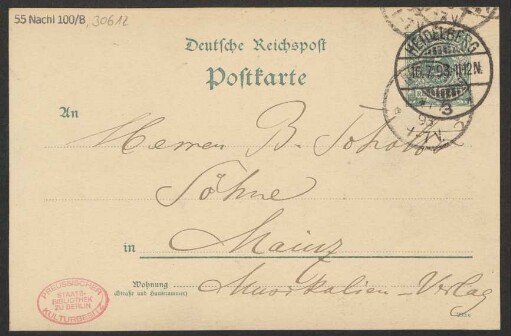 55 Nachl 100/B, 30612
Deutsche Reichspost
Postkarte
HEIDELBERG
16.7.93.11-12N.
3
An
Herren B. Schott's
Söhne
in Mainz
Wohnung
(Straße und Hausnummer)
Musikalien-Verlag
PREUSSISCHER
STAATS-
BIBLIOTHEK
ZU BERLIN
KULTURBESITZ